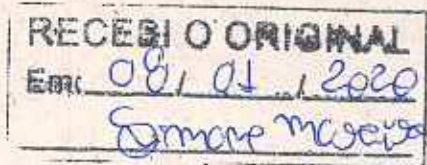 RECEBI O ORIGINAL
Em: 08 / 01 / 2020
Simone Moreira